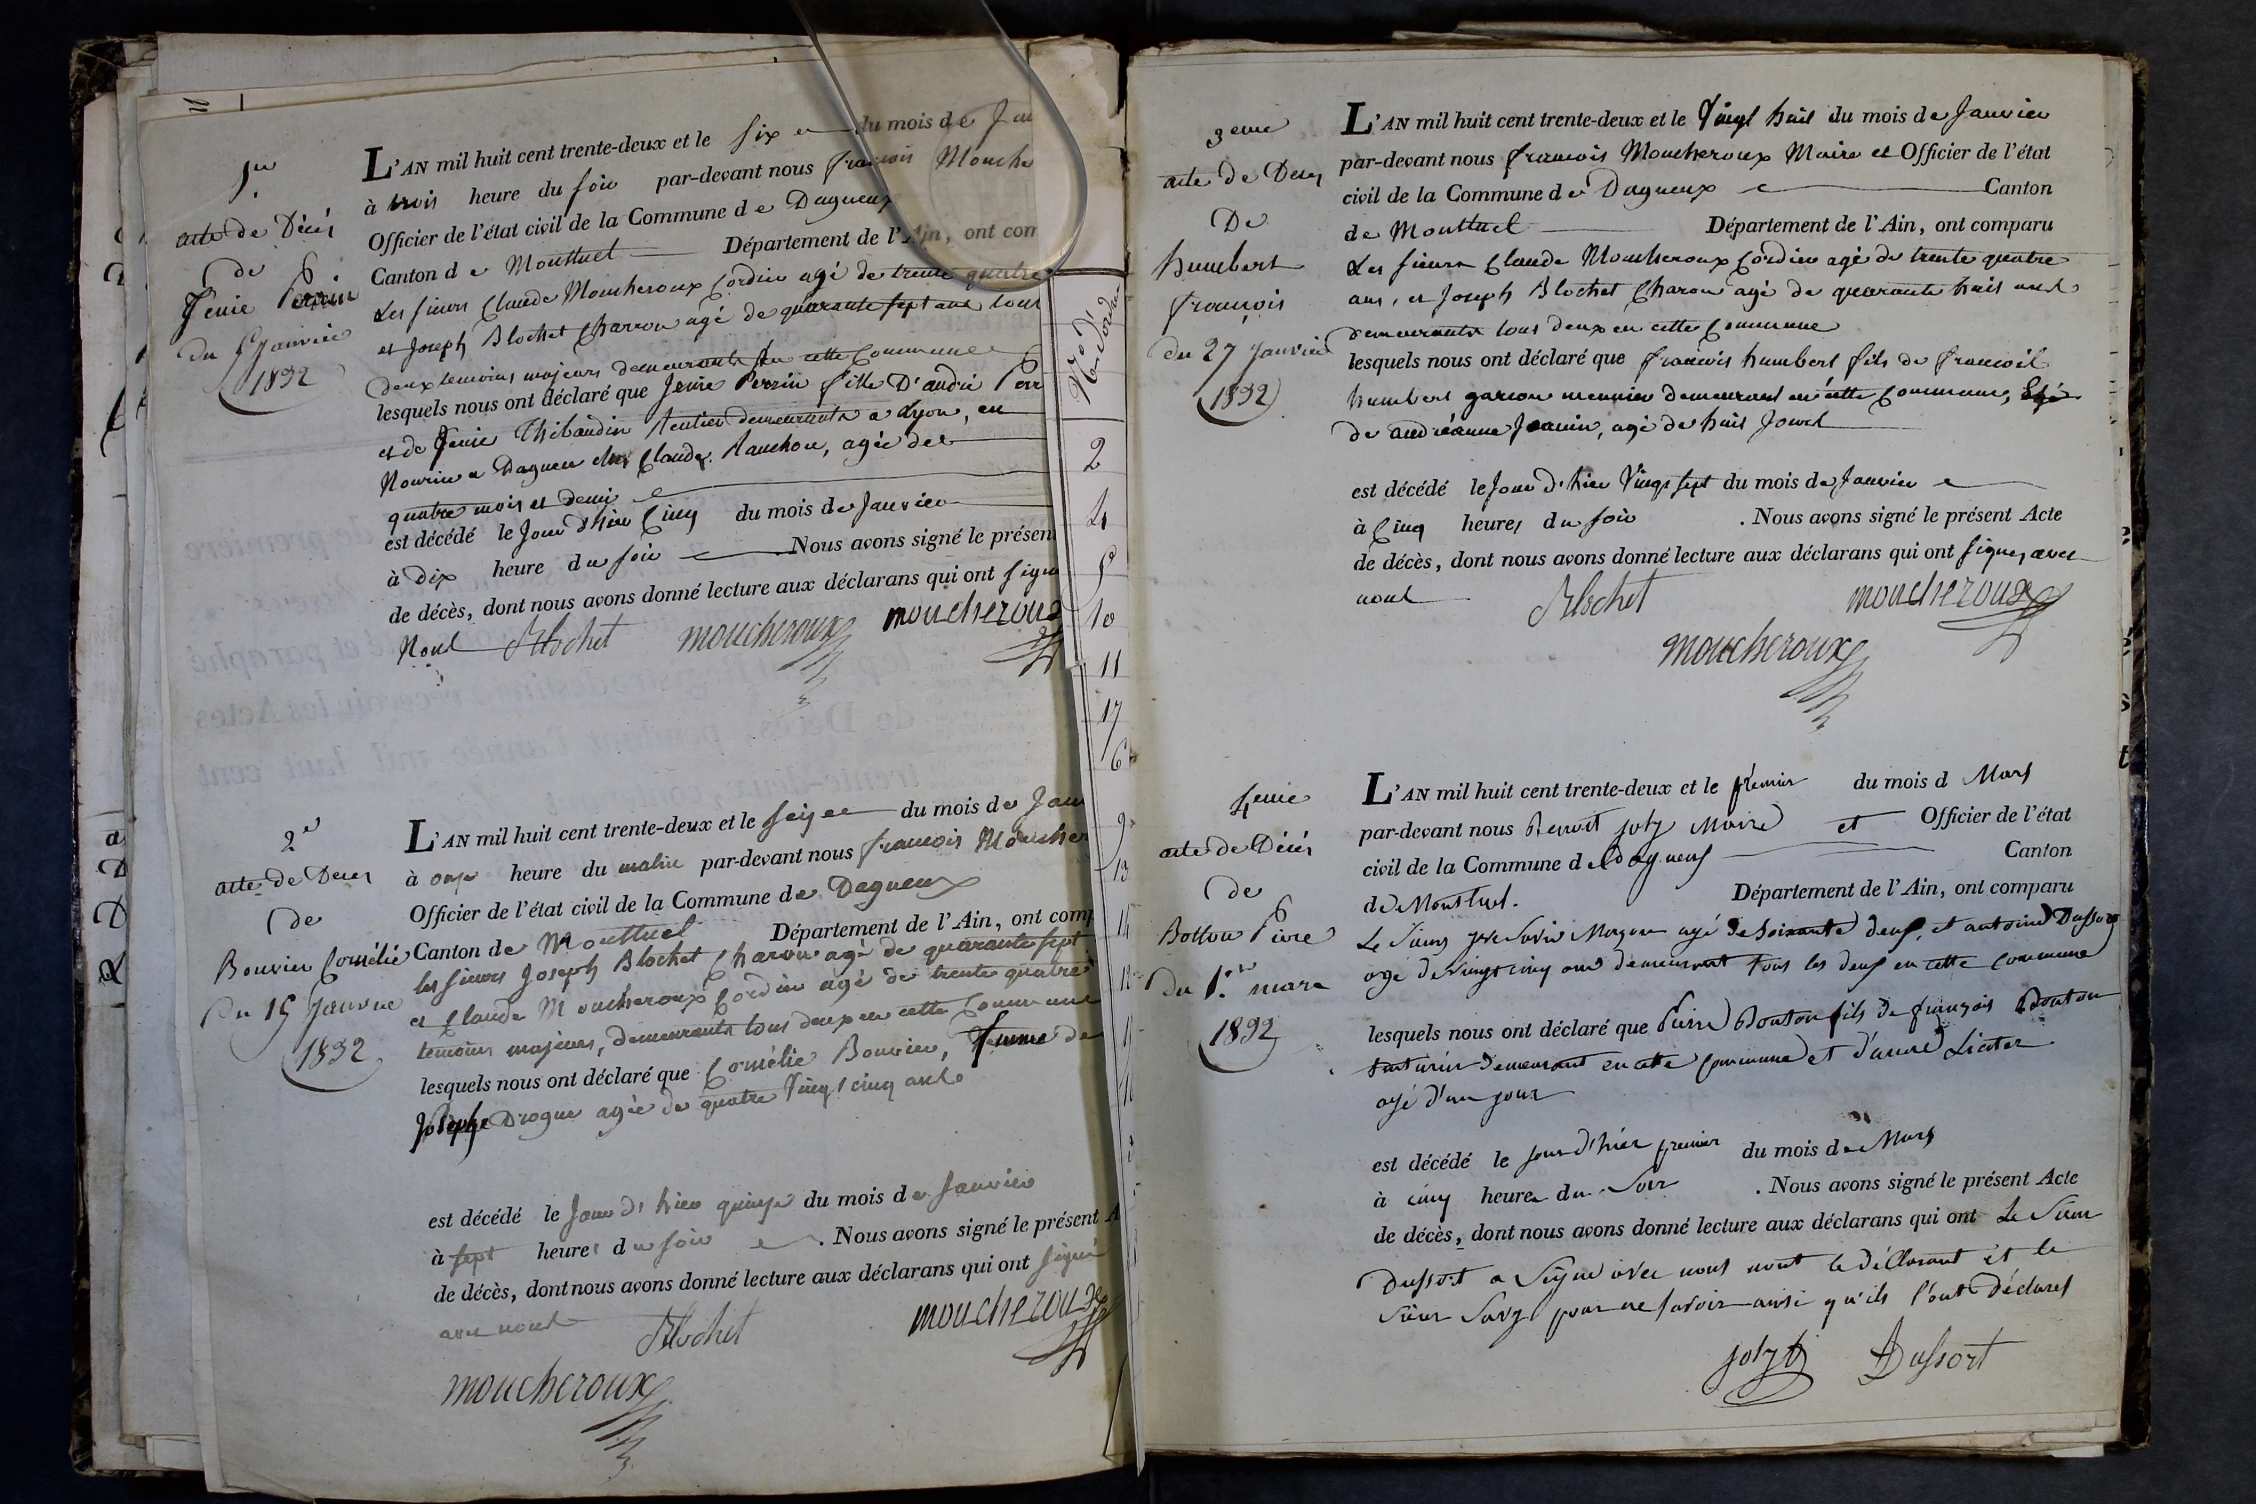 1er
acte de Décès
de
Jenie Perrin
du 5 Janvier
1832
L'AN mil huit cent trente-deux et le six du mois de Jan
à trois heure du soir par-devant nous françois Mouche
Officier de l'état civil de la Commune de Dagneux
Canton de Montluel Département de l'Ain, ont com
Les sieurs Claude Moucheroux Cordier agé de trente quatre
et Joseph Blochet Charron agé de quarante sept ans tous
deux temoins majeurs demeurants en cette Commune
lesquels nous ont déclaré que Jenie Perrin fille D'andré Perr
et de Jenie Thibaudin Rentier demeurants a Lyon, en
Nourice a Dagneu chez Claude Ranchon, agée de
quatre mois et demi
est décédé le Jour d'hier Cinq du mois de Janvier
à Dix heure du soir Nous avons signé le présent
de décès, dont nous avons donné lecture aux déclarans qui ont signé
Nous Blochet moucheroux moucheroux
2e
acte de Deces
de
Bouvier Cornélie
Du 15 Janvier
1832
L'AN mil huit cent trente-deux et le seize du mois de Janv
à onze heure du matin par-devant nous françois Moucher
Officier de l'état civil de la Commune de Dagneux
Canton de Montluel Département de l'Ain, ont comp
les sieurs Joseph Blochet Charon agé de quarante sept
et Claude Moucheroux Cordier agé de trente quatre
temoins majeurs, demeurants tous deux en cette Commune
lesquels nous ont déclaré que Cornélie Bouvier, femme de
Joseph Drogue agée de quatre Vingt cinq ans
est décédé le Jour d'hier quinze du mois de Janvier
à sept heures du soir . Nous avons signé le présent A
de décès, dont nous avons donné lecture aux déclarans qui ont signé
avec nous Blochet moucheroux
moucheroux
No d'
2
4
5
10
11
17
6
9
13
14
12
3eme
acte de Deces
De
humbert
françois
du 27 Janvier
1832
L'AN mil huit cent trente-deux et le Vingt huit du mois de Janvier
par-devant nous françois Moucheroux Maire et Officier de l'état
civil de la Commune de Dagneux Canton
de Montluel Département de l'Ain, ont comparu
Les sieurs Claude Moucheroux Cordier agé de trente quatre
ans, et Joseph Blochet Charon agé de quarante huit ans
demeurants tous deux en cette Commune
lesquels nous ont déclaré que françois humbert fils de françois
humbert garcon meunier demeurant en cette Commune,
de andréanne Jeanin, agé de huit Jours
est décédé le Jour d'hier Vingt sept du mois de Janvier
à Cinq heures du soir . Nous avons signé le présent Acte
de décès, dont nous avons donné lecture aux déclarans qui ont signez avec
nous Blochet moucheroux
moucheroux
4eme
acte de Décés
de
Botton Pierre
Du 1er mars
1832
L'AN mil huit cent trente-deux et le premier du mois d Mars
par-devant nous Benoit Joly Maire et Officier de l'état
civil de la Commune de Dagneux Canton
de Montluel. Département de l'Ain, ont comparu
Le Sieurs Savin Maçon agé de Soixante deux, et antoine Dussort
agé de vingt cinq ans demeurant tous les deux en cette Commune
lesquels nous ont déclaré que Pierre Bouton fils de françois Bouton
demeurant en cette Commune et d'anne
agé d'un jour
est décédé le jour d'hier premier du mois de Mars
à cinq heures du Soir . Nous avons signé le présent Acte
de décès, dont nous avons donné lecture aux déclarans qui ont Le Sieur
Dussort a Signé avec nous nont le déclarant et le
Sieur pour ne savoir ainsi qu'ils l'ont Déclarés
Joly Dussort